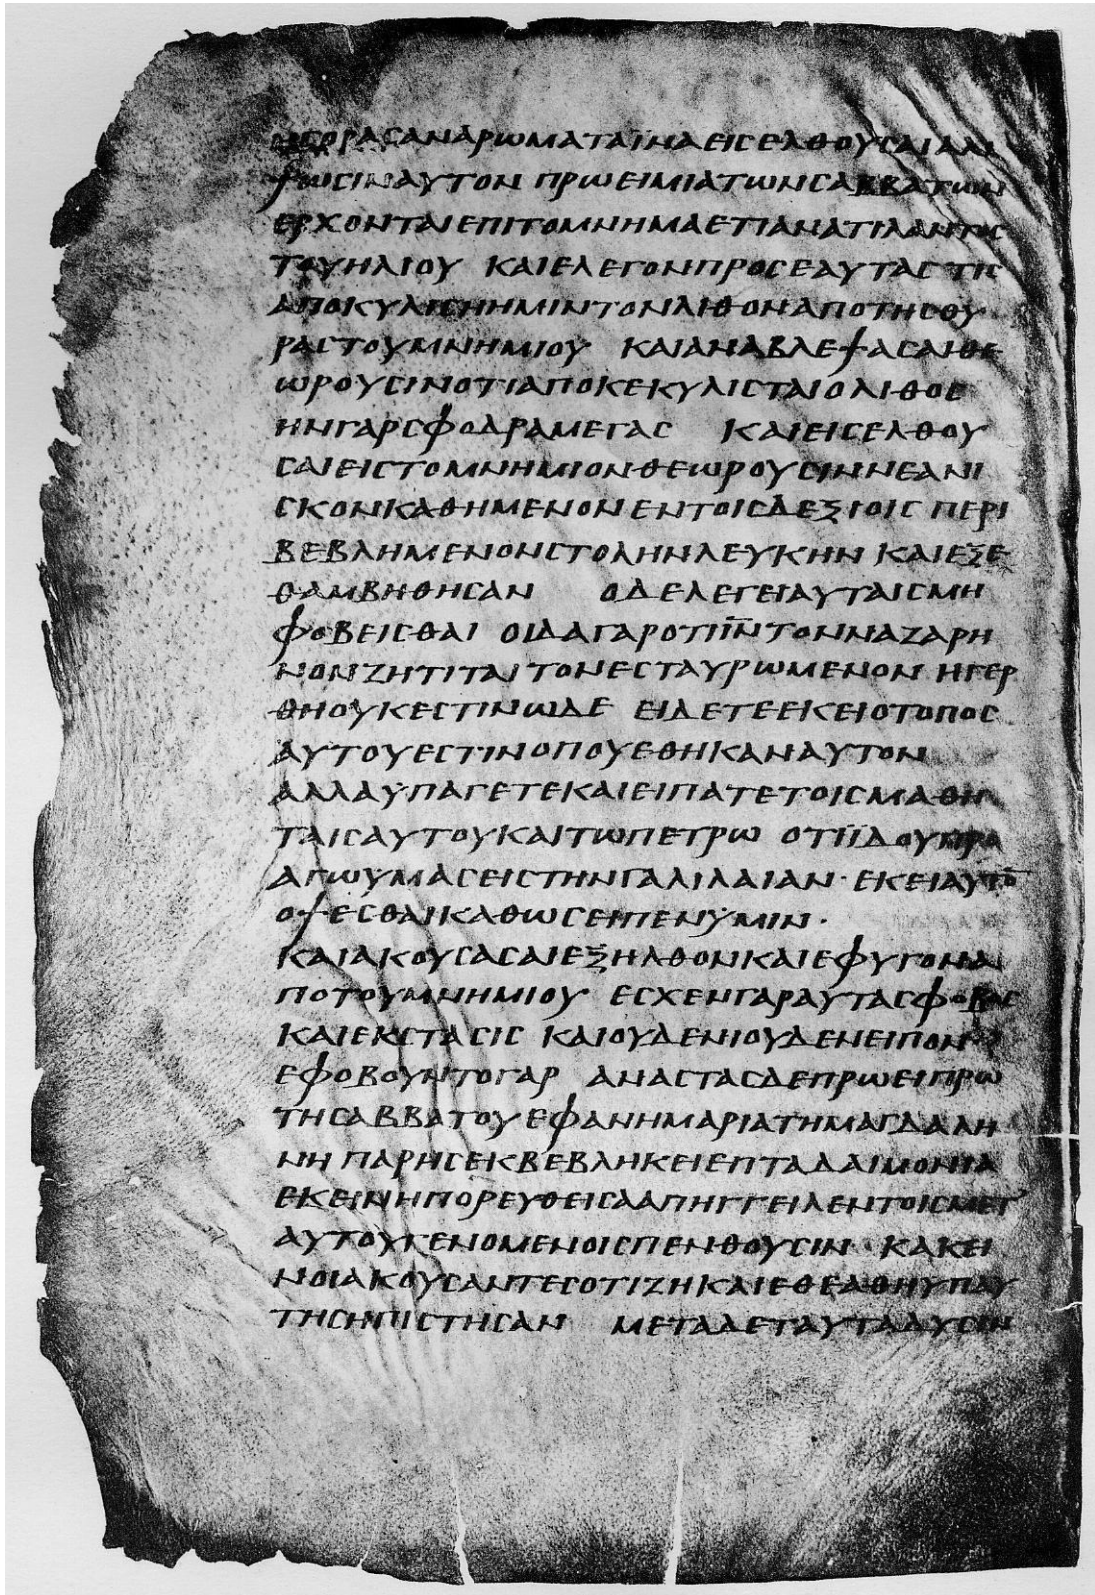 ΗΓΟΡΑCΑΝΑΡΩΜΑΤΑΪΝΑΕΙCΕΛΘΟΥCΑΙΑΛΙ
ΨΩCΙΝΑΥΤΟΝ ΠΡΩΕΙΜΙΑΤΩΝCΑΒΒΑΤΩΝ
ΕΡΧΟΝΤΑΙΕΠΙΤΟΜΝΗΜΑΕΤΙΑΝΑΤΙΛΑΝΤΟC
ΤΟΥΗΛΙΟΥ ΚΑΙΕΛΕΓΟΝΠΡΟCΕΑΥΤΑC ΤΙC
ΑΠΟΚΥΛΙCΗΗΜΙΝΤΟΝΛΙΘΟΝΑΠΟΤΗCΘΥ
ΡΑCΤΟΥΜΝΗΜΙΟΥ ΚΑΙΑΝΑΒΛΕΨΑCΑΙΘΕ
ΩΡΟΥCΙΝΟΤΙΑΠΟΚΕΚΥΛΙCΤΑΙΟΛΙΘΟC
ΗΝΓΑΡCΦΟΔΡΑΜΕΓΑC ΚΑΙΕΙCΕΛΘΟΥ
CΑΙΕΙCΤΟΜΝΗΜΙΟΝΘΕΩΡΟΥCΙΝΝΕΑΝΙ
CΚΟΝΚΑΘΗΜΕΝΟΝΕΝΤΟΙCΔΕΞΙΟΙC ΠΕΡΙ
ΒΕΒΛΗΜΕΝΟΝCΤΟΛΗΝΛΕΥΚΗΝ ΚΑΙΕΞΕ
ΘΑΜΒΗΘΗCΑΝ ΟΔΕΛΕΓΕΙΑΥΤΑΙCΜΗ
ΦΟΒΕΙCΘΑΙ ΟΙΔΑΓΑΡΟΤΙΙ̅Ν̅ΤΟΝΝΑΖΑΡΗ
ΝΟΝΖΗΤΙΤΑΙ ΤΟΝΕCΤΑΥΡΩΜΕΝΟΝ ΗΓΕΡ
ΘΗΟΥΚΕCΤΙΝΩΔΕ ΕΙΔΕΤΕΕΚΕΙΟΤΟΠΟC
ΑΥΤΟΥΕCΤΙΝΟΠΟΥΕΘΗΚΑΝΑΥΤΟΝ
ΑΛΛΑΫΠΑΓΕΤΕΚΑΙΕΙΠΑΤΕΤΟΙCΜΑΘΗ
ΤΑΙCΑΥΤΟΥΚΑΙΤΩΠΕΤΡΩ ΟΤΙΪΔΟΥΠΡΟ
ΑΓΩΫΜΑCΕΙCΤΗΝΓΑΛΙΛΑΙΑΝ · ΕΚΕΙΑΥΤΟ̅
ΟΨΕCΘΑΙΚΑΘΩCΕΙΠΕΝΫΜΙΝ ·
ΚΑΙΑΚΟΥCΑCΑΙΕΞΗΛΘΟΝΚΑΙΕΦΥΓΟΝΑ
ΠΟΤΟΥΜΝΗΜΙΟΥ ΕCΧΕΝΓΑΡΑΥΤΑCΦΟΒΟC
ΚΑΙΕΚCΤΑCΙC ΚΑΙΟΥΔΕΝΙΟΥΔΕΝΕΙΠΟΝ
ΕΦΟΒΟΥΝΤΟΓΑΡ ΑΝΑCΤΑCΔΕΠΡΩΕΙΠΡΩ
ΤΗCΑΒΒΑΤΟΥΕΦΑΝΗΜΑΡΙΑΤΗΜΑΓΔΑΛΗ
ΝΗ ΠΑΡΗCΕΚΒΕΒΛΗΚΕΙΕΠΤΑΔΑΙΜΟΝΙΑ
ΕΚΕΙΝΗΠΟΡΕΥΘΕΙCΑΑΠΗΓΓΕΙΛΕΝΤΟΙCΜΕΤ
ΑΥΤΟΥΓΕΝΟΜΕΝΟΙCΠΕΝΘΟΥCΙΝ · ΚΑΚΕΙ
ΝΟΙΑΚΟΥCΑΝΤΕCΟΤΙΖΗΚΑΙΕΘΕΑΘΗΥΠΑΥ
ΤΗCΗΠΙCΤΗCΑΝ ΜΕΤΑΔΕΤΑΥΤΑΔΥCΙΝ